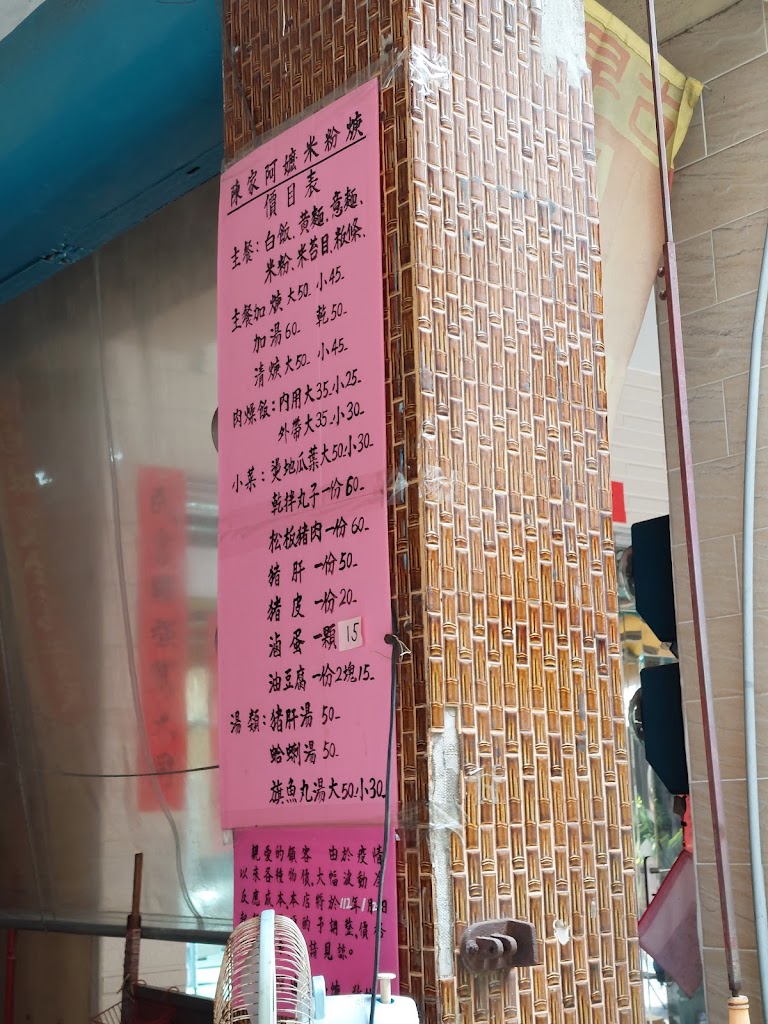 陳家阿嬤米粉焿
價目表
主餐：白飯、黃麵、意麵、
米粉、米苔目、粄條、
主餐加焿大50_小45_
加湯60_ 乾50_
清焿大50_小45_
肉燥飯：內用大35_小25_
外帶大35_小30_
小菜：燙地瓜葉大50_小30_
乾拌丸子一份60_
松板豬肉一份60_
豬肝一份50_
豬皮一份20_
滷蛋一顆15
油豆腐一份2塊15_
湯類：豬肝湯 50_
蛤蜊湯 50_
旗魚丸湯大50_小30_
親愛的顧客 由於疫情
以來各種物價、大幅波動為
反應成本、本店將於112年1月
的予調整、價格
請見諒。